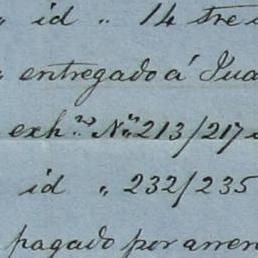 " id " 14 tre
" entregado á Jua
exh.º Nº 213/217
id " 232/235
pagado por arren